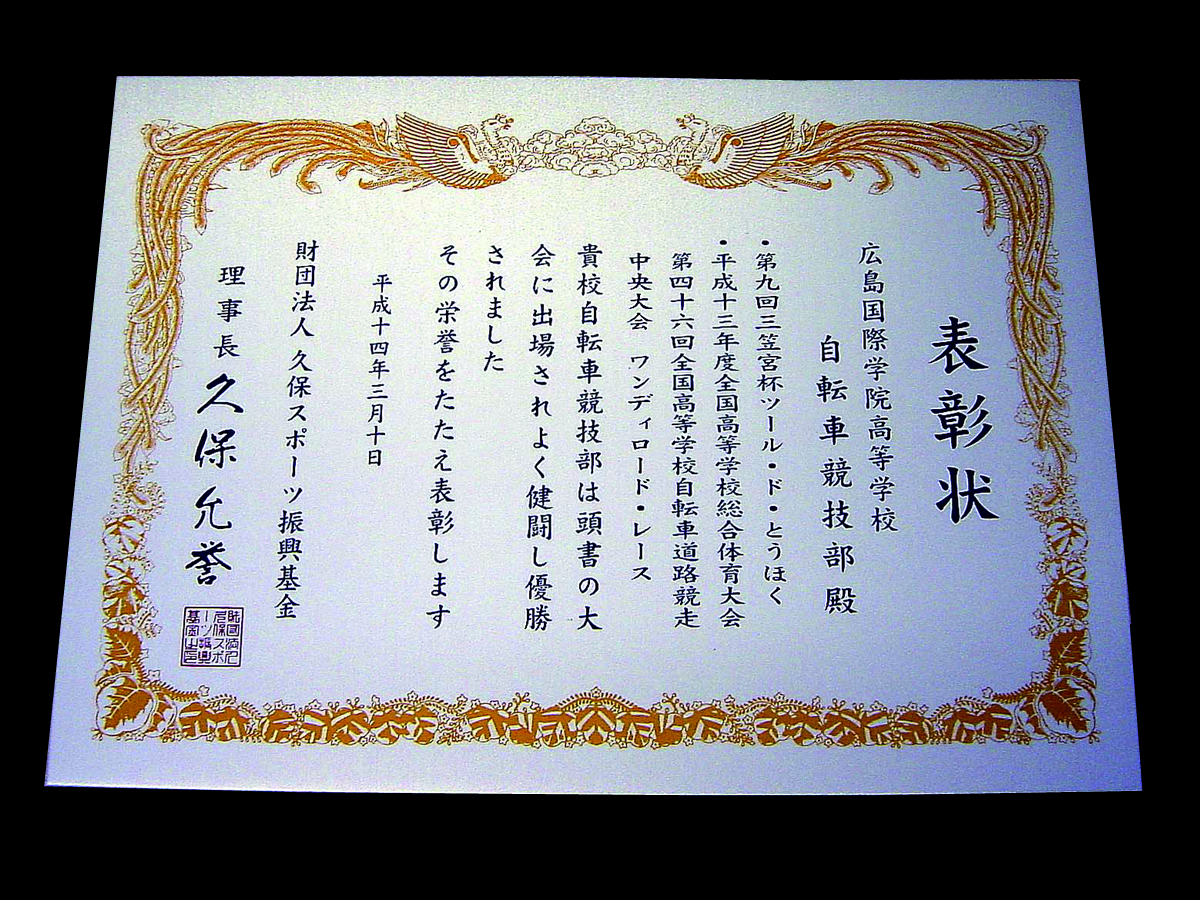 表彰状
広島国際学院高等学校
自転車競技部殿
・第九回三笠宮杯ツール・ド・とうほく
・平成十三年度全国高等学校総合体育大会
第四十六回全国高等学校自転車道路競走
中央大会 ワンディロード・レース
貴校自転車競技部は頭書の大
会に出場されよく健闘し優勝
されました
その栄誉をたたえ表彰します
平成十四年三月十日
財団法人 久保スポーツ振興基金
理事長 久保允誉